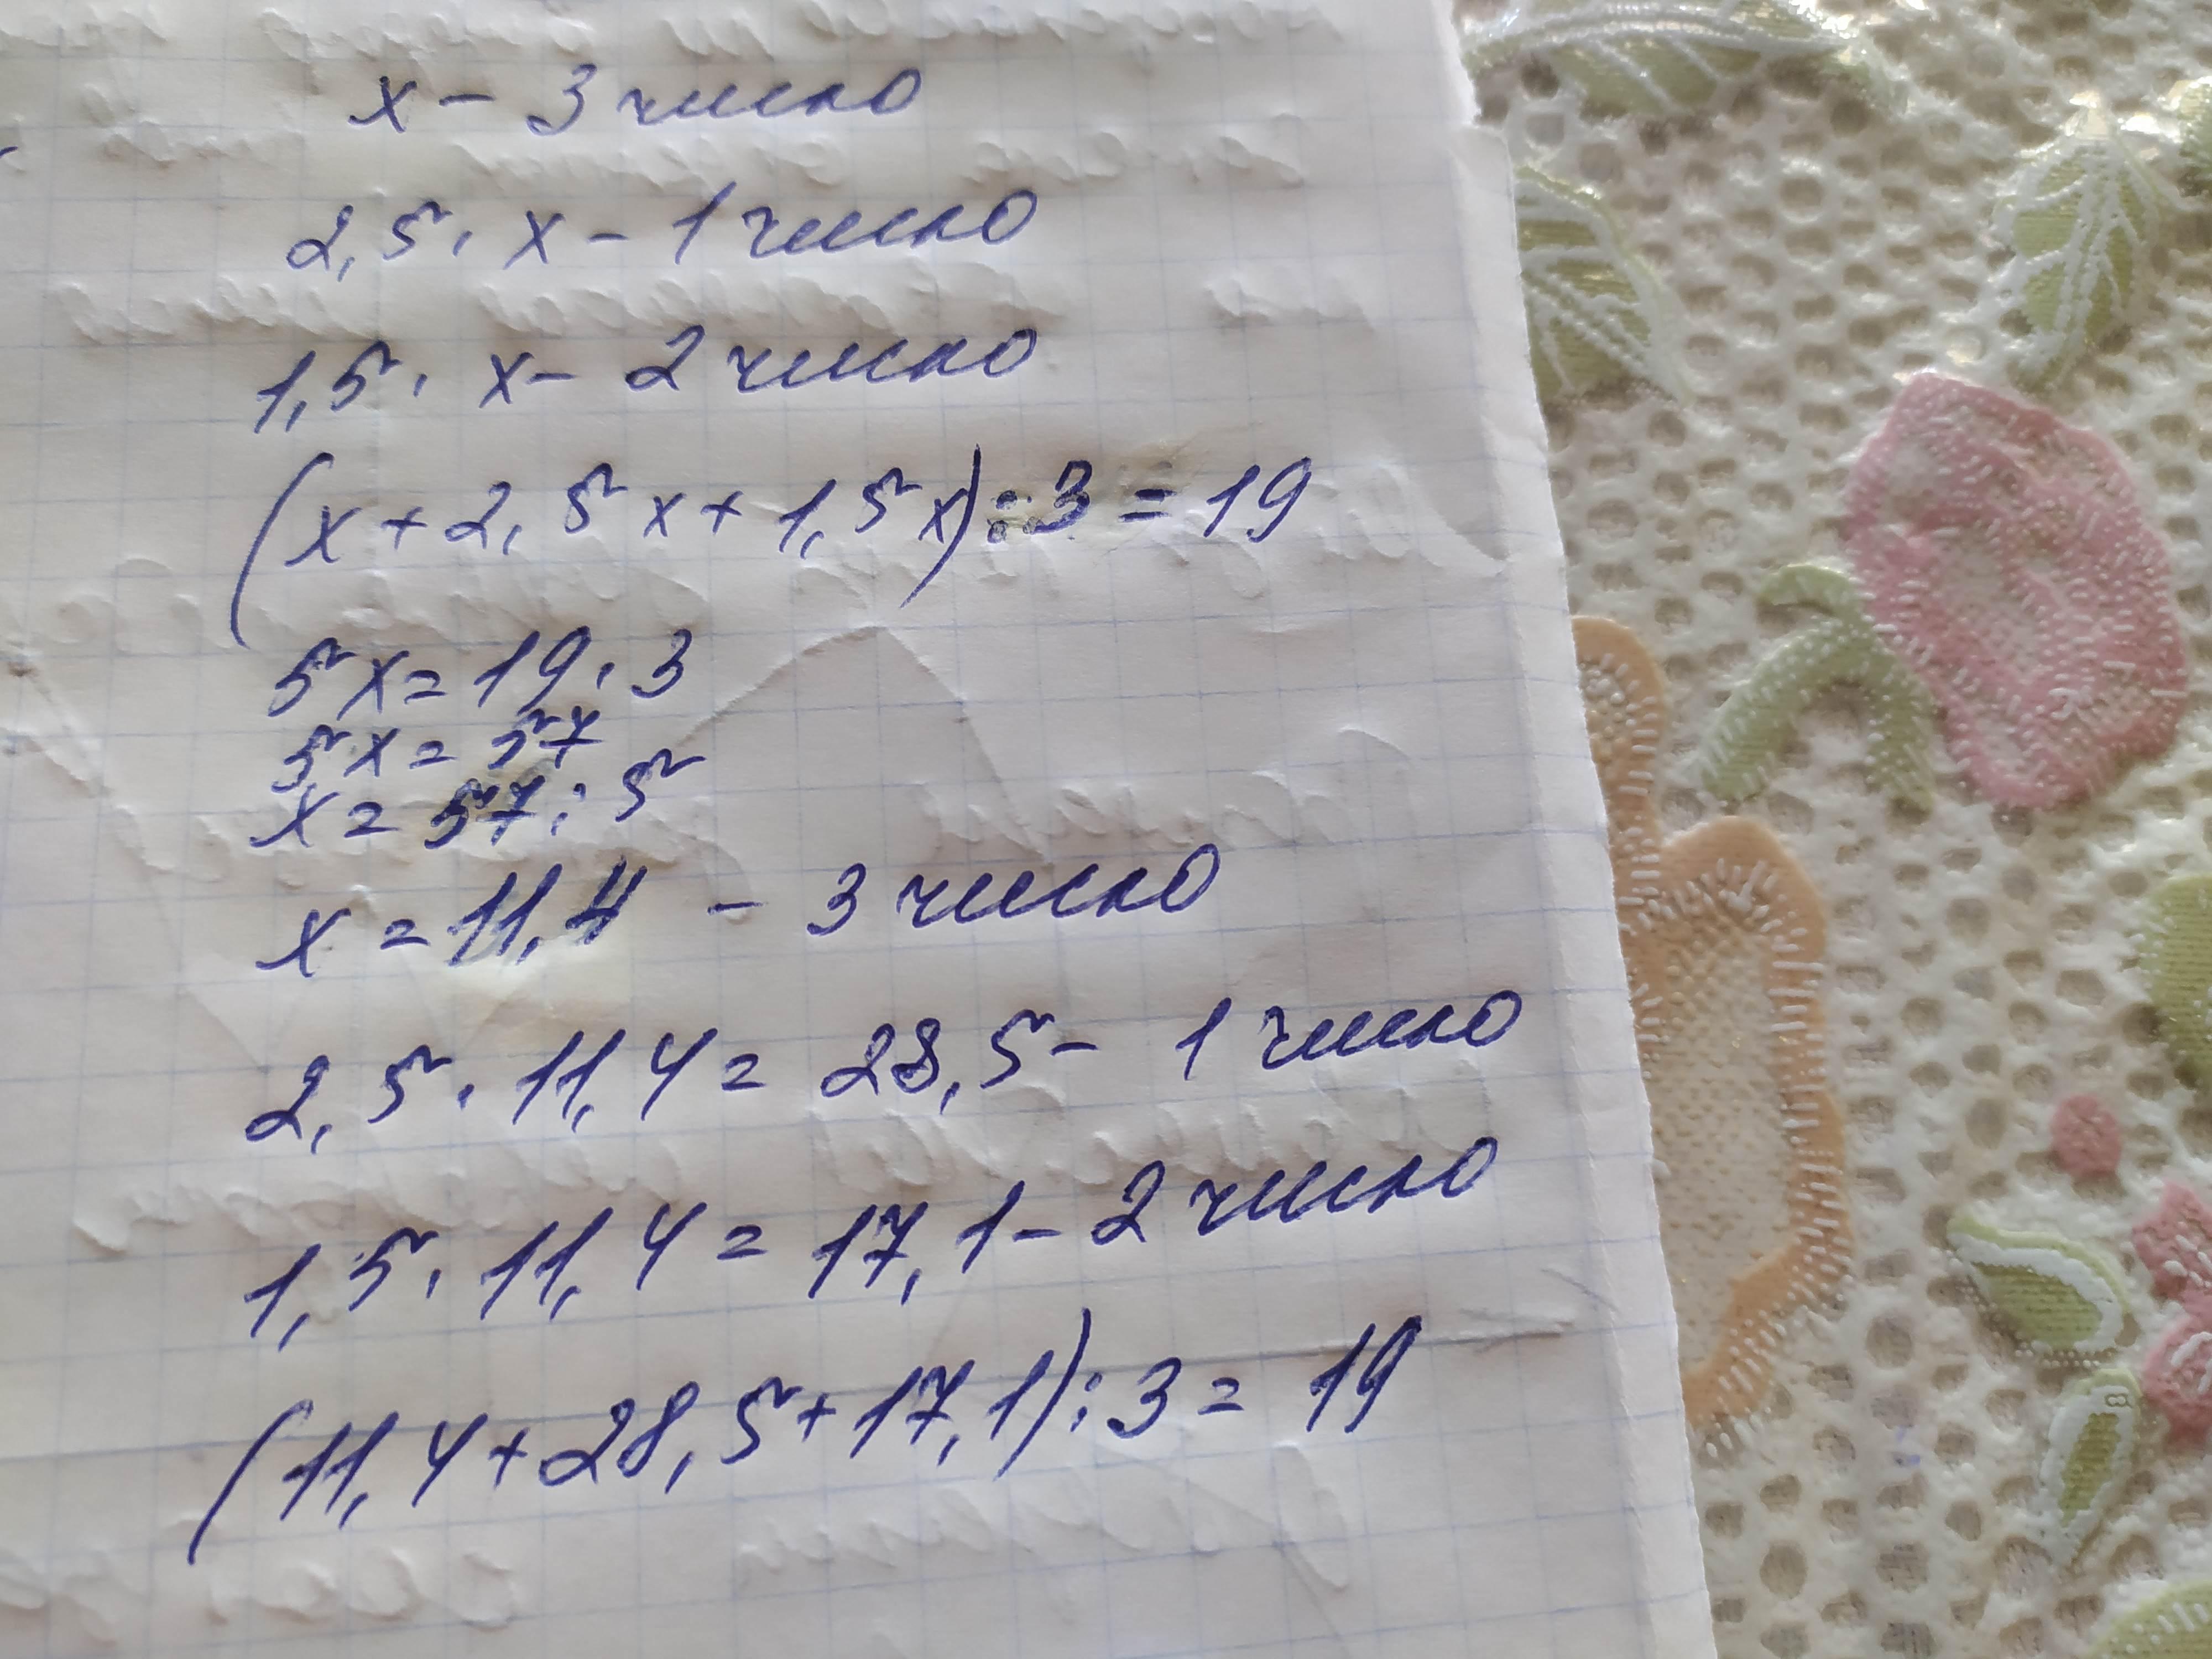 x - 3 число
2,5 · x - 1 число
1,5 · x - 2 число
(x + 2,5x + 1,5x) : 3 = 19
5x = 19 · 3
5x = 57
x = 57 : 5
x = 11,4 - 3 число
2,5 · 11,4 = 28,5 - 1 число
1,5 · 11,4 = 17,1 - 2 число
(11,4 + 28,5 + 17,1) : 3 = 19